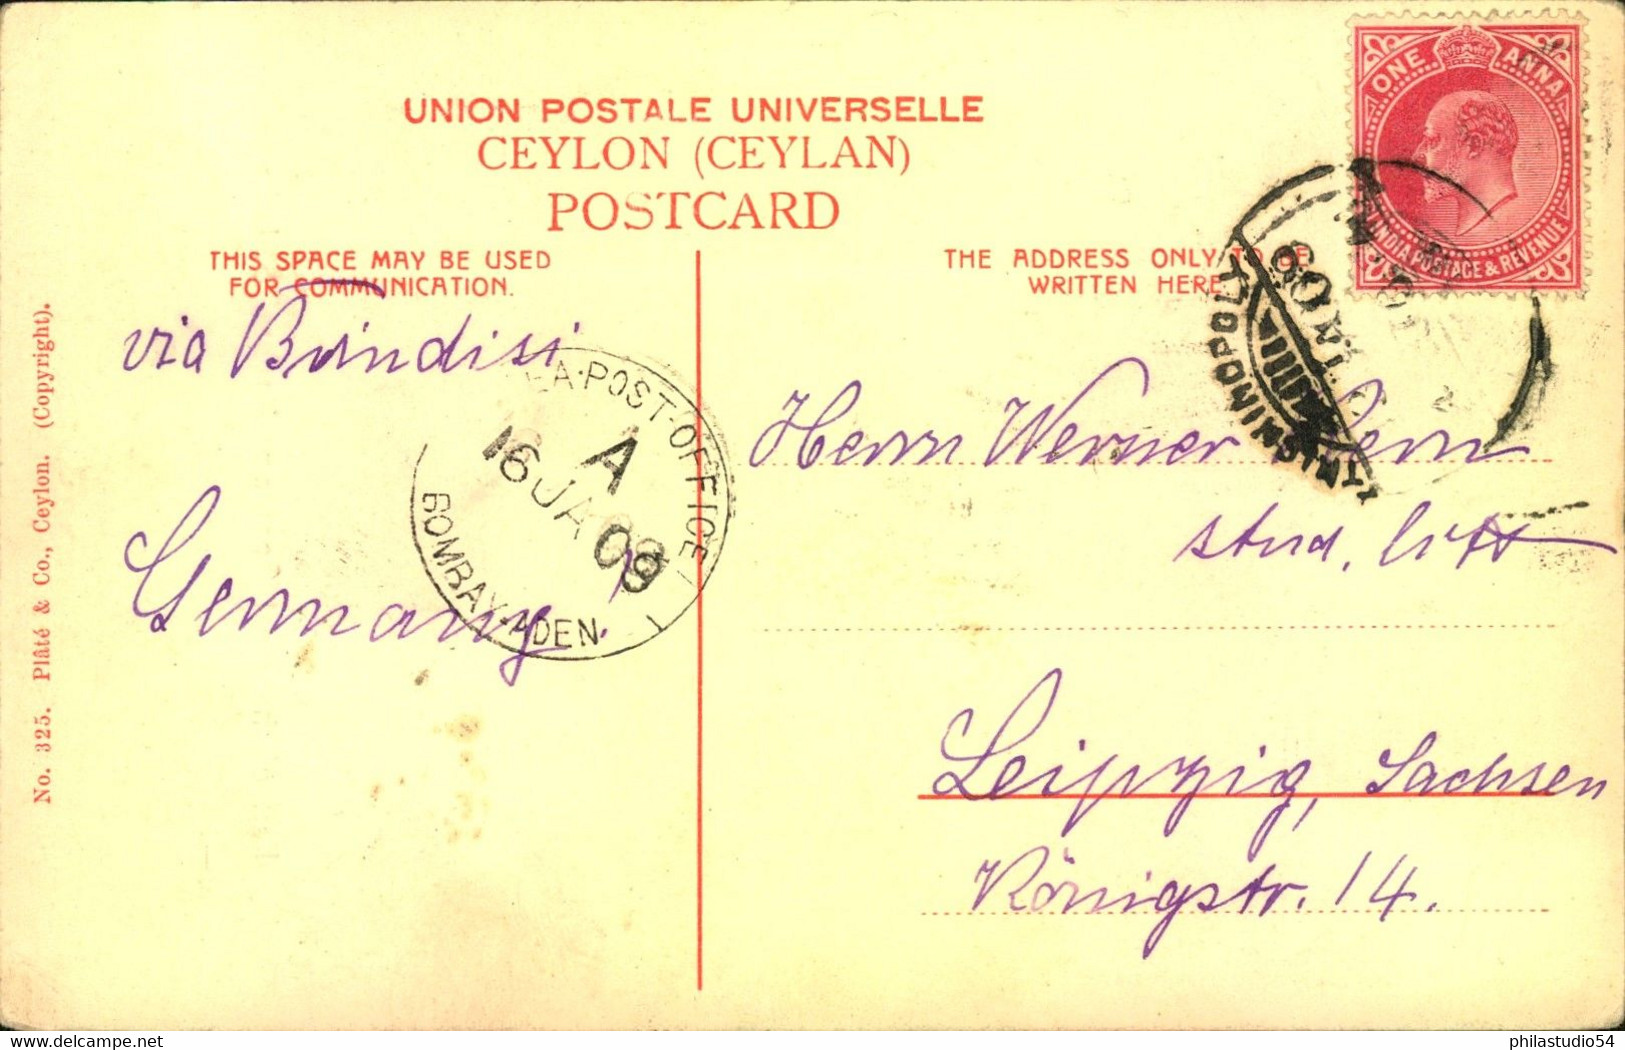 UNION POSTALE UNIVERSELLE
CEYLON (CEYLAN)
POSTCARD
THIS SPACE MAY BE USED
FOR COMMUNICATION.
THE ADDRESS ONLY TO BE
WRITTEN HERE.
ONE ANNA
INDIA POSTAGE & REVENUE
via Brindisi
Germany.
SEA·POST-OFFICE
A
16 JA 09
BOMBAY-ADEN.
Herrn Werner
stud.
Leipzig, Sachsen
Königstr. 14.
No. 325. Plâté & Co., Ceylon. (Copyright).
philastudio54